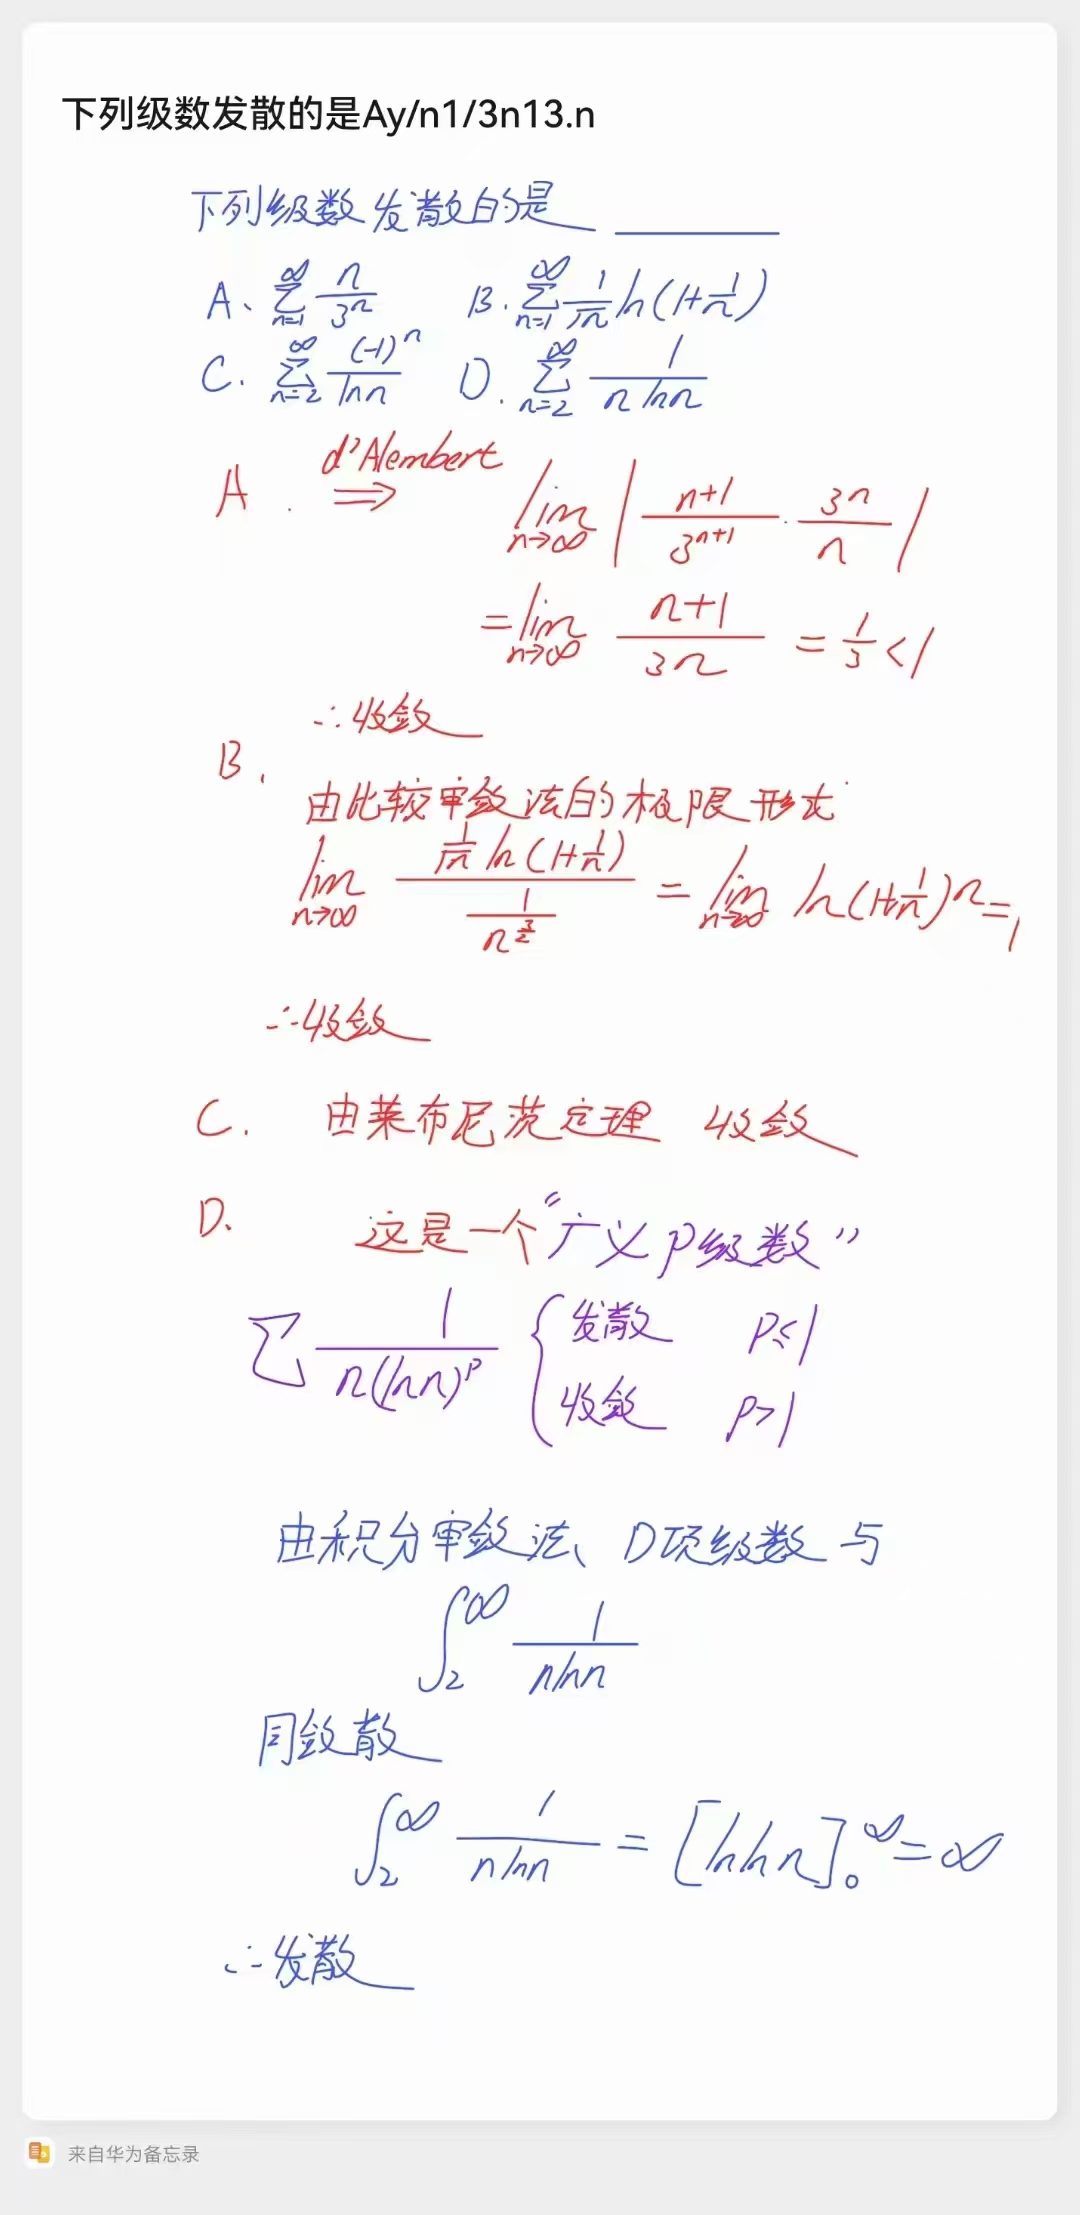 下列级数发散的是Ay/n1/3n13.n
下列级数发散的是 ______
A、∑_{n=1}^{∞} n/3^n B. ∑_{n=1}^{∞} 1/√n ln(1+1/n)
C. ∑_{n=2}^{∞} (-1)^n/ln n D. ∑_{n=2}^{∞} 1/(n ln n)
A. d'Alembert ⇒ lim_{n→∞} | (n+1)/3^{n+1} · 3^n/n |
= lim_{n→∞} (n+1)/(3n) = 1/3 < 1
∴收敛
B.
由比较审敛法的极限形式
lim_{n→∞} (1/√n ln(1+1/n))/(1/n^{3/2}) = lim_{n→∞} ln(1+1/n)^n = 1
∴收敛
C. 由莱布尼茨定理 收敛
D. 这是一个“广义P级数”
∑ 1/(n(ln n)^p) { 发散 p≤1
收敛 p>1
由积分审敛法、D项级数与
∫_2^∞ 1/(n ln n)
同敛散
∫_2^∞ 1/(n ln n) = [ln ln n]_0^∞ = ∞
∴发散
来自华为备忘录